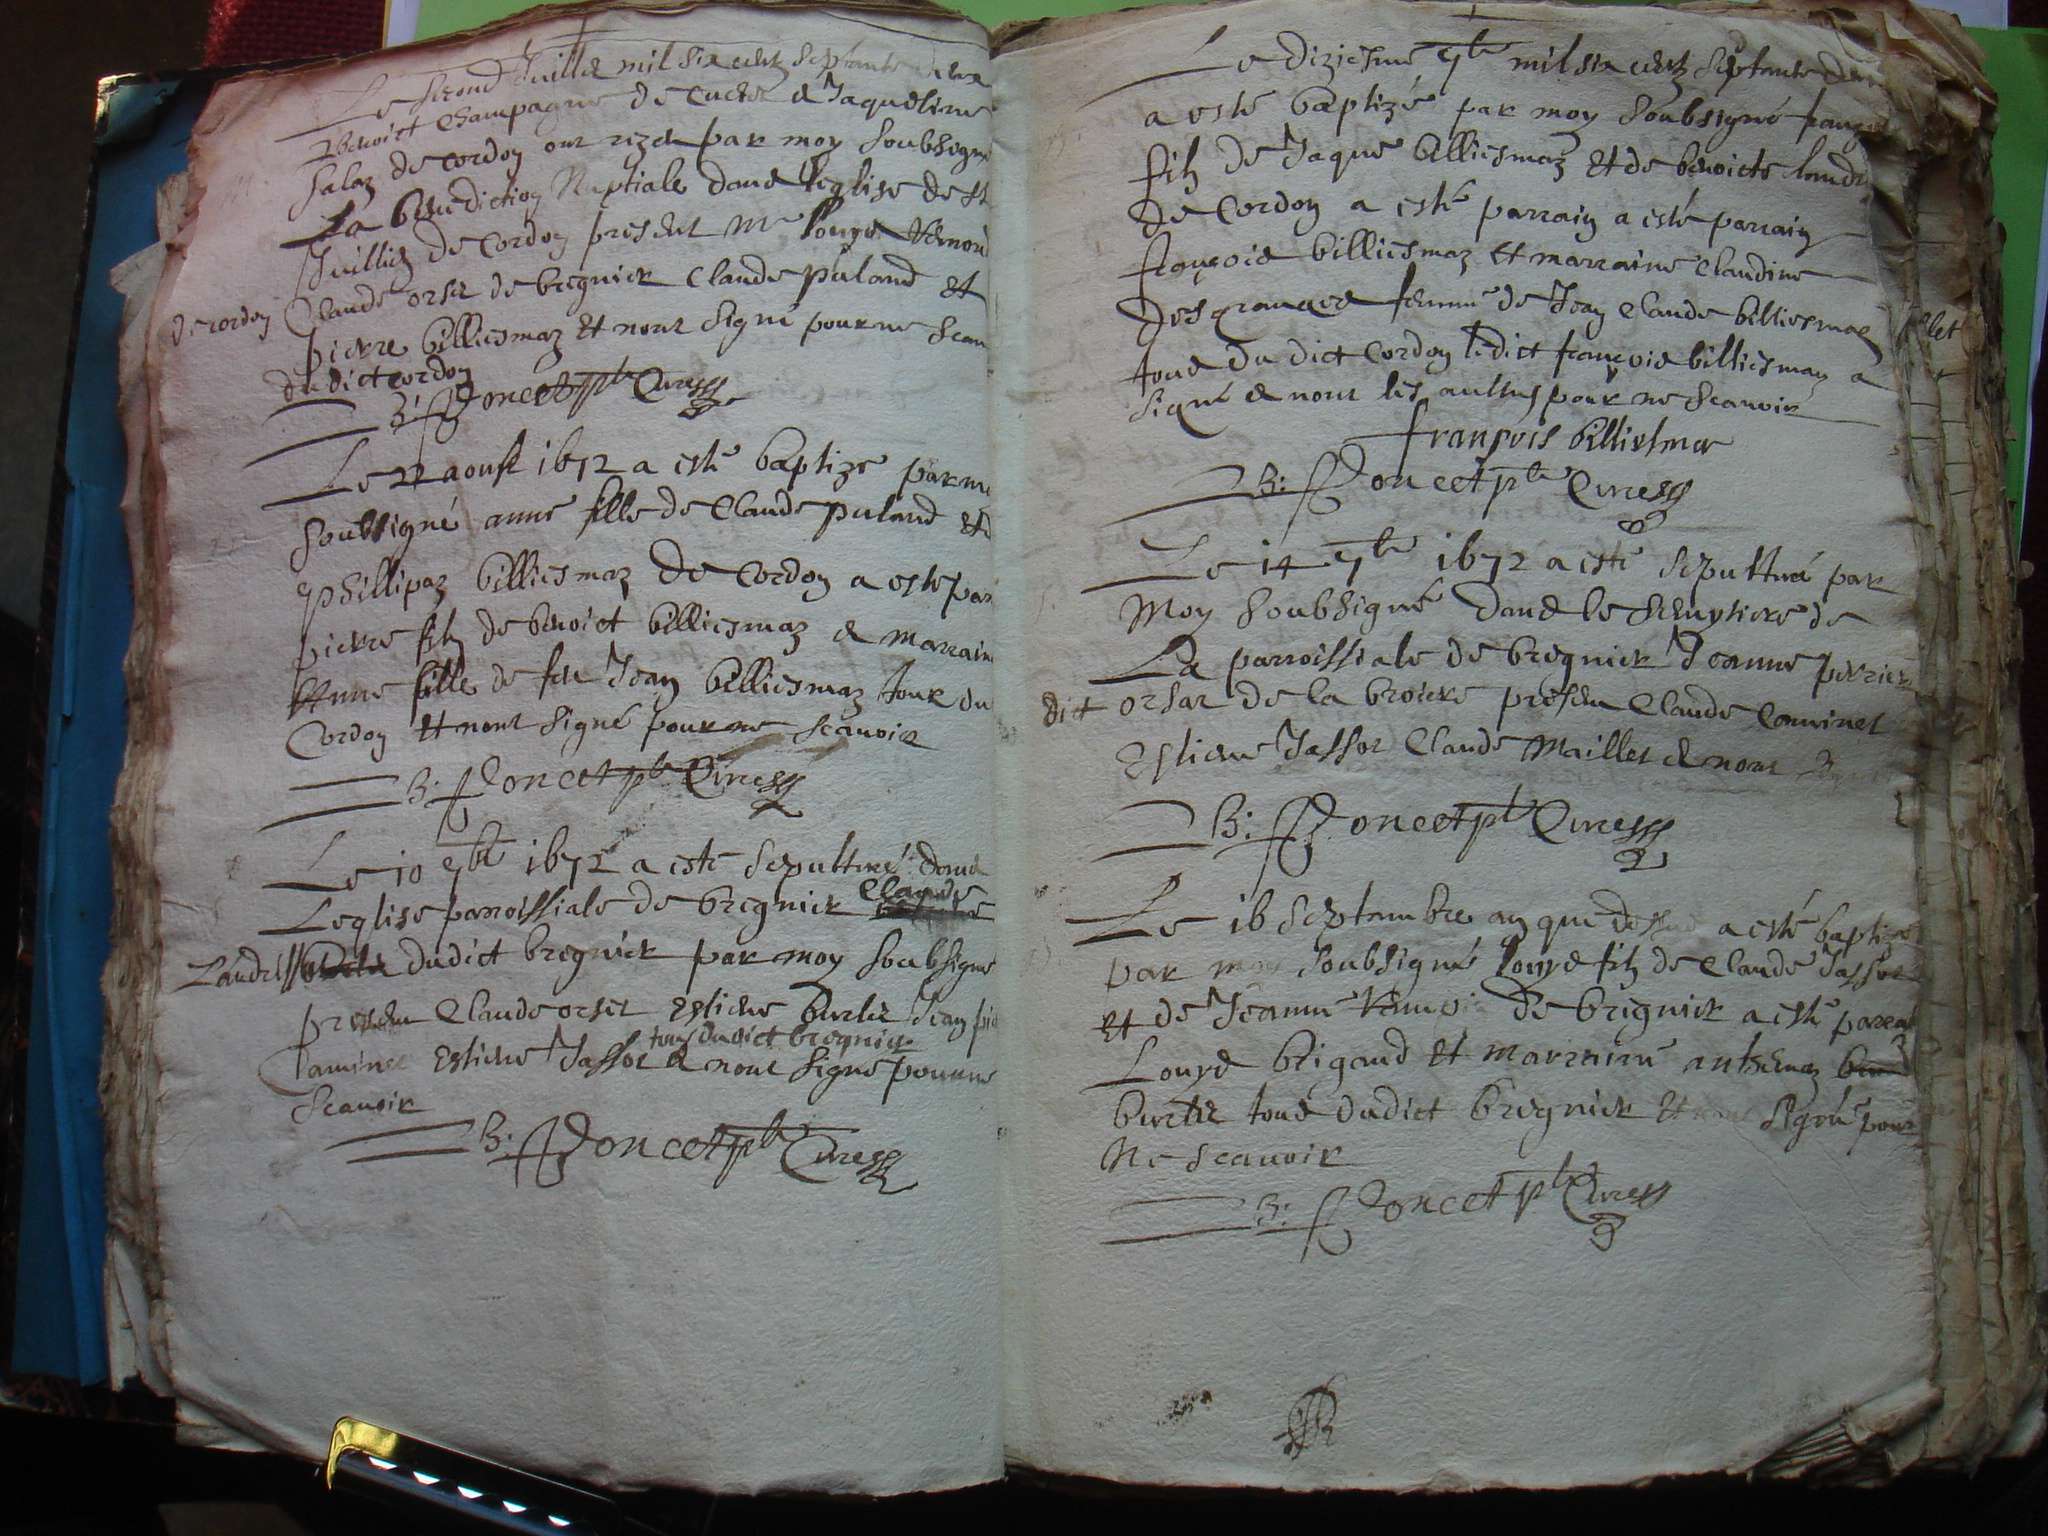 Le second Juillet mil six centz septante deux
Benoict Champagne de Cuchet & Jaqueline
Salaz de cordon ont reçeu par moy soubsigné
La benediction Nuptiale dans leglise de st
Juillien de Cordon present Me Louys
de cordon Claude orset de bregnier Claude pulaud et
pierre billiesmaz et nont signé pour ne scau
du dict cordon
B: poncet pbr Curé
Le 22 aoust 1672 a esté baptizé par m
soubsigné anne fille de Claude pulaud et d
phillipaz billiesmaz de cordon a esté par
pierre filz de benoict billiesmaz & marrain
Anne fille de feu Jean billiesmaz tous du
Cordon et nont signé pour ne scauoir
B: poncet pbr Curé
Le 10 7bre 1672 a esté sepulturé dans
Leglise parroissiale de bregnier Claude
Landrel dudict bregnier par moy soubsigné
presens Claude orset Estiene burtet Jean
tous dudict bregnier
Estiene Jassot & nont signé pour ne
scauoir
B: poncet pbr Curé
Le diziesme 7bre mil six centz septante deu
a esté baptizé par moy soubsigné françoi
filz de Jaque billiesmaz et de benoicte Land
de Cordon a esté parrain a esté parrain
françois billiesmaz et marraine Claudine
desgranges femme de Jean Claude billiesmaz
tous du dict Cordon ledict françois billiesmaz a
signé & nont les aultres pour ne scauoir
françois billielmaz
B: poncet pbr Curé
Le 14 7bre 1672 a esté sepulturé par
Moy soubsigné dans le semytiere de
La parroissiale de bregnier Jeanne perrier
dict orsat de la broiere presens Claude Couvinet
Estiene Jassot Claude Maillet & nont
B: poncet pbr Curé
Le 16 septembre an que dessus a esté baptizé
par moy soubsigné Louys filz de Claude Jassot
et de Jeanne de bregnier a esté parrai
Louys brigaud et marraine anthemaz
burtet tous dudict bregnier et nont signé pour
Ne scauoir
B: poncet pbr Curé